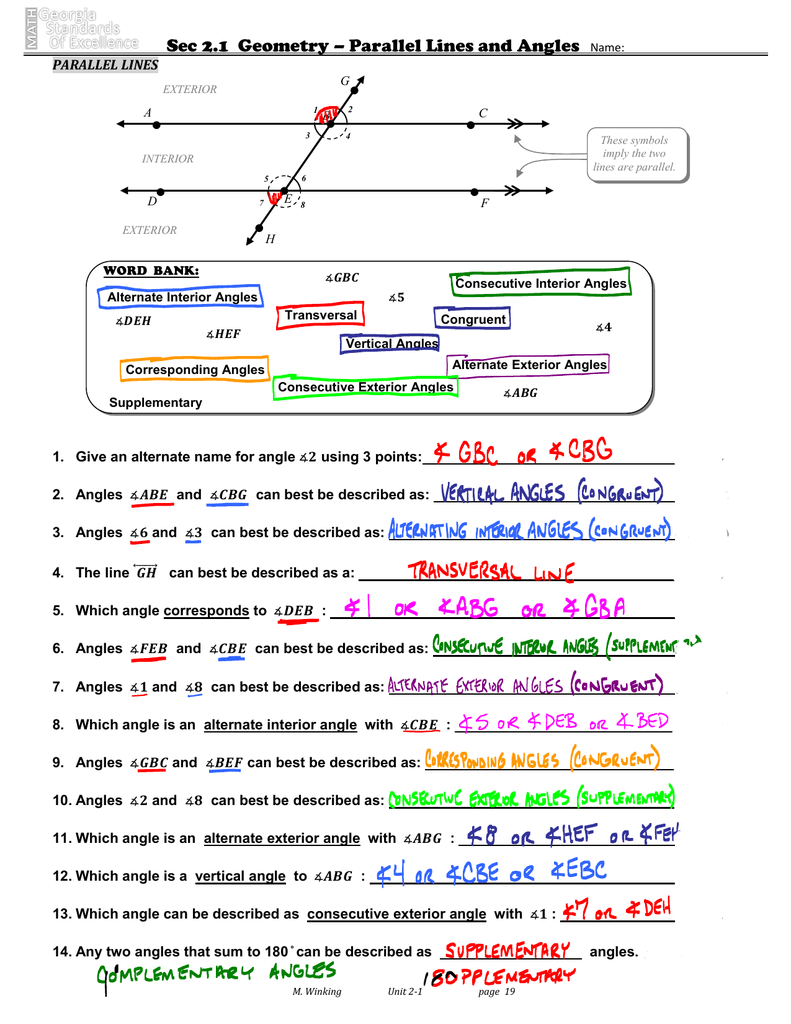 MATH Georgia
Standards
Of Excellence
Sec 2.1 Geometry – Parallel Lines and Angles Name:
PARALLEL LINES
EXTERIOR
G
A
1
2
C
3
4
These symbols
imply the two
lines are parallel.
INTERIOR
5
6
D
7
E
8
F
EXTERIOR
H
WORD BANK:
∡GBC
Consecutive Interior Angles
Alternate Interior Angles
∡5
∡DEH
Transversal
Congruent
∡HEF
∡4
Vertical Angles
Corresponding Angles
Alternate Exterior Angles
Consecutive Exterior Angles
∡ABG
Supplementary
1. Give an alternate name for angle ∡2 using 3 points: ∡ GBC OR ∡CBG
2. Angles ∡ABE and ∡CBG can best be described as: VERTICAL ANGLES (CONGRUENT)
3. Angles ∡6 and ∡3 can best be described as: ALTERNATING INTERIOR ANGLES (CONGRUENT)
4. The line GH can best be described as a: TRANSVERSAL LINE
5. Which angle corresponds to ∡DEB : ∡1 OR ∡ABG OR ∡GBA
6. Angles ∡FEB and ∡CBE can best be described as: CONSECUTIVE INTERIOR ANGLES (SUPPLEMENT
7. Angles ∡1 and ∡8 can best be described as: ALTERNATE EXTERIOR ANGLES (CONGRUENT)
8. Which angle is an alternate interior angle with ∡CBE : ∡5 OR ∡DEB OR ∡BED
9. Angles ∡GBC and ∡BEF can best be described as: CORRESPONDING ANGLES (CONGRUENT)
10. Angles ∡2 and ∡8 can best be described as: CONSECUTIVE EXTERIOR ANGLES (SUPPLEMENTARY)
11. Which angle is an alternate exterior angle with ∡ABG : ∡8 OR ∡HEF OR ∡FEH
12. Which angle is a vertical angle to ∡ABG : ∡4 OR ∡CBE OR ∡EBC
13. Which angle can be described as consecutive exterior angle with ∡1 : ∡7 OR ∡DEH
14. Any two angles that sum to 180° can be described as SUPPLEMENTARY angles.
COMPLEMENTARY ANGLES 180PPLEMENTARY
M. Winking Unit 2-1 page 19